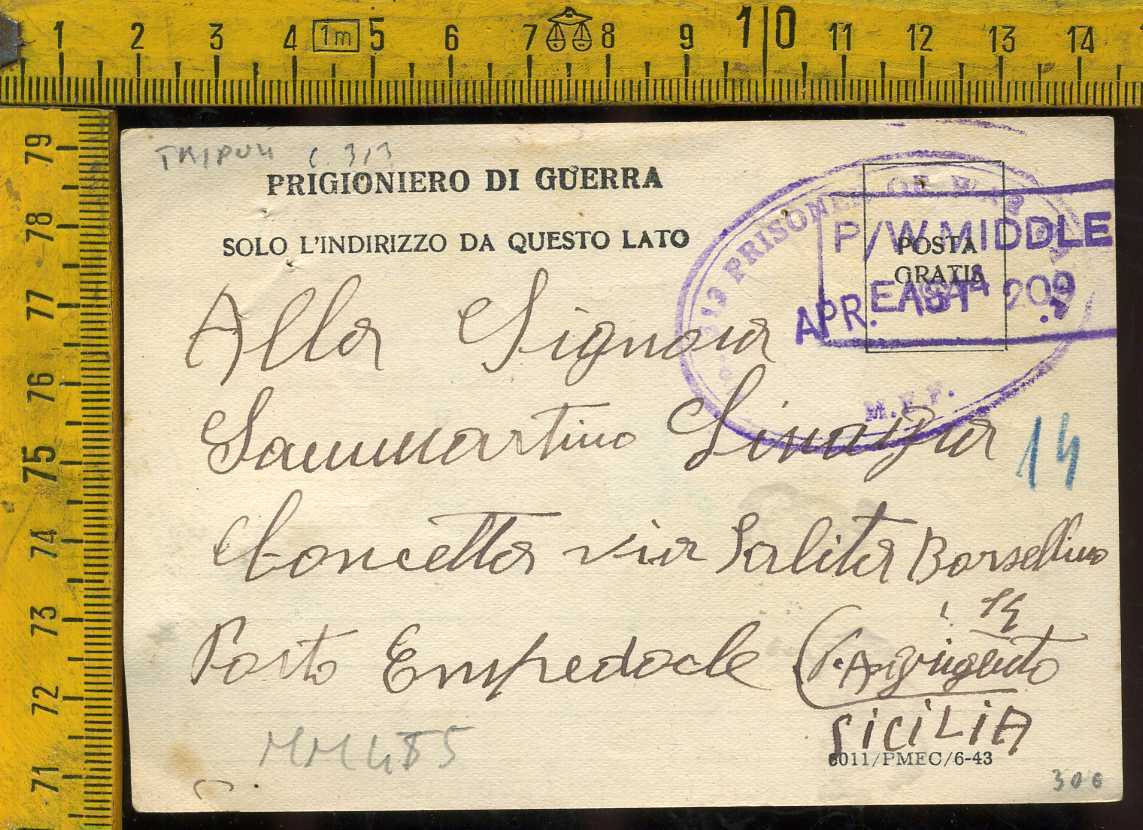 1 2 3 4 1m 5 6 7 8 9 10 11 12 13 14
79
78
77
76
75
74
73
72
71
TRIPOLI C. 313
PRIGIONIERO DI GUERRA
SOLO L'INDIRIZZO DA QUESTO LATO
POSTA
GRATIS
313 PRISONER OF WAR
M.E.F.
P/W MIDDLE
EAST 209
APR.
Alla Signora
Sammartino Sinagra
14
Concetta via Salita Borsellino
Porto Empedocle (P. Agrigento
SICILIA
MM485
6011/PMEC/6-43
300